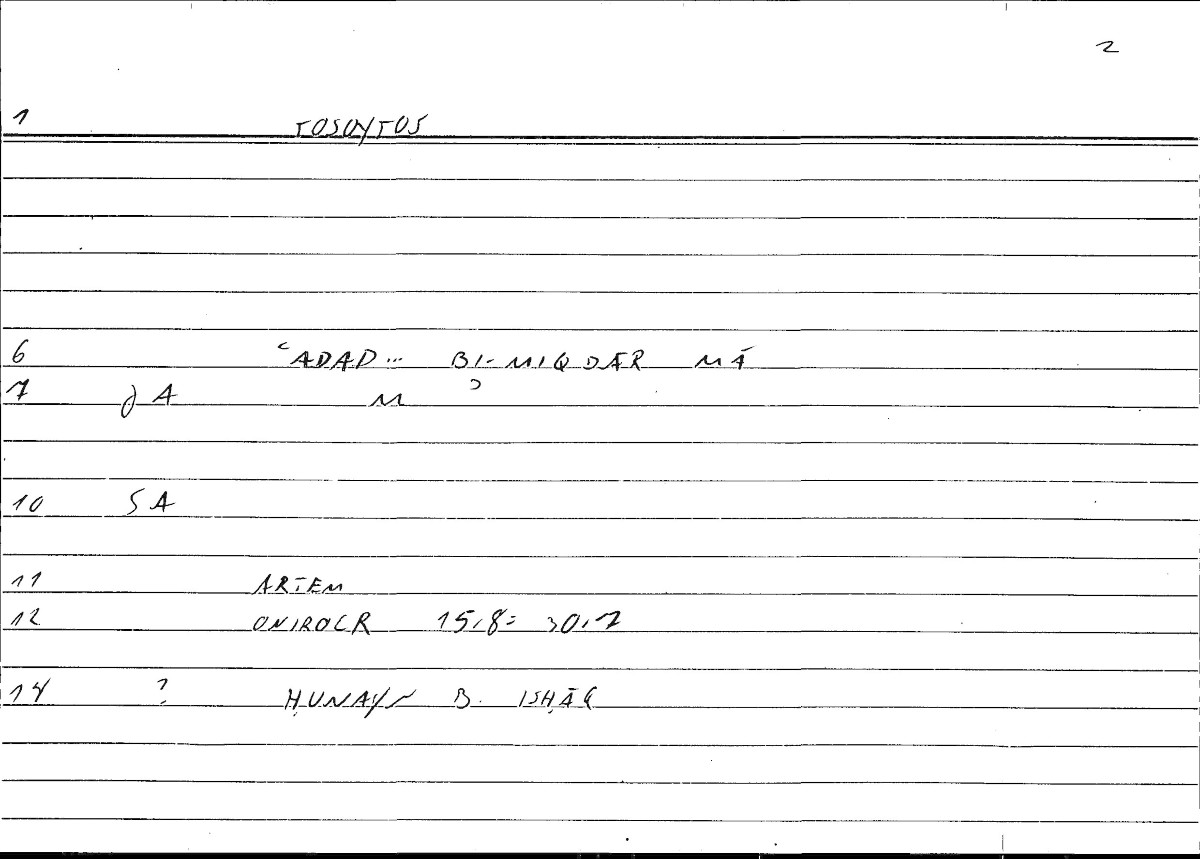 2
1 TOSOYTOS
6 ʿADAD... BI-MIQDĀR MĀ
7 ∂A M ʾ
10 SA
11 ARTEM
12 ONIROCR 15,8= 30,7
14 ? ḤUNAYN B. ISḤĀQ